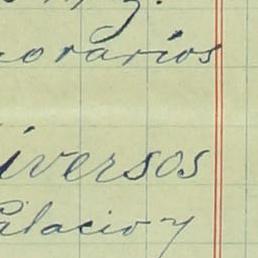 norarios
iversos
Palacio y